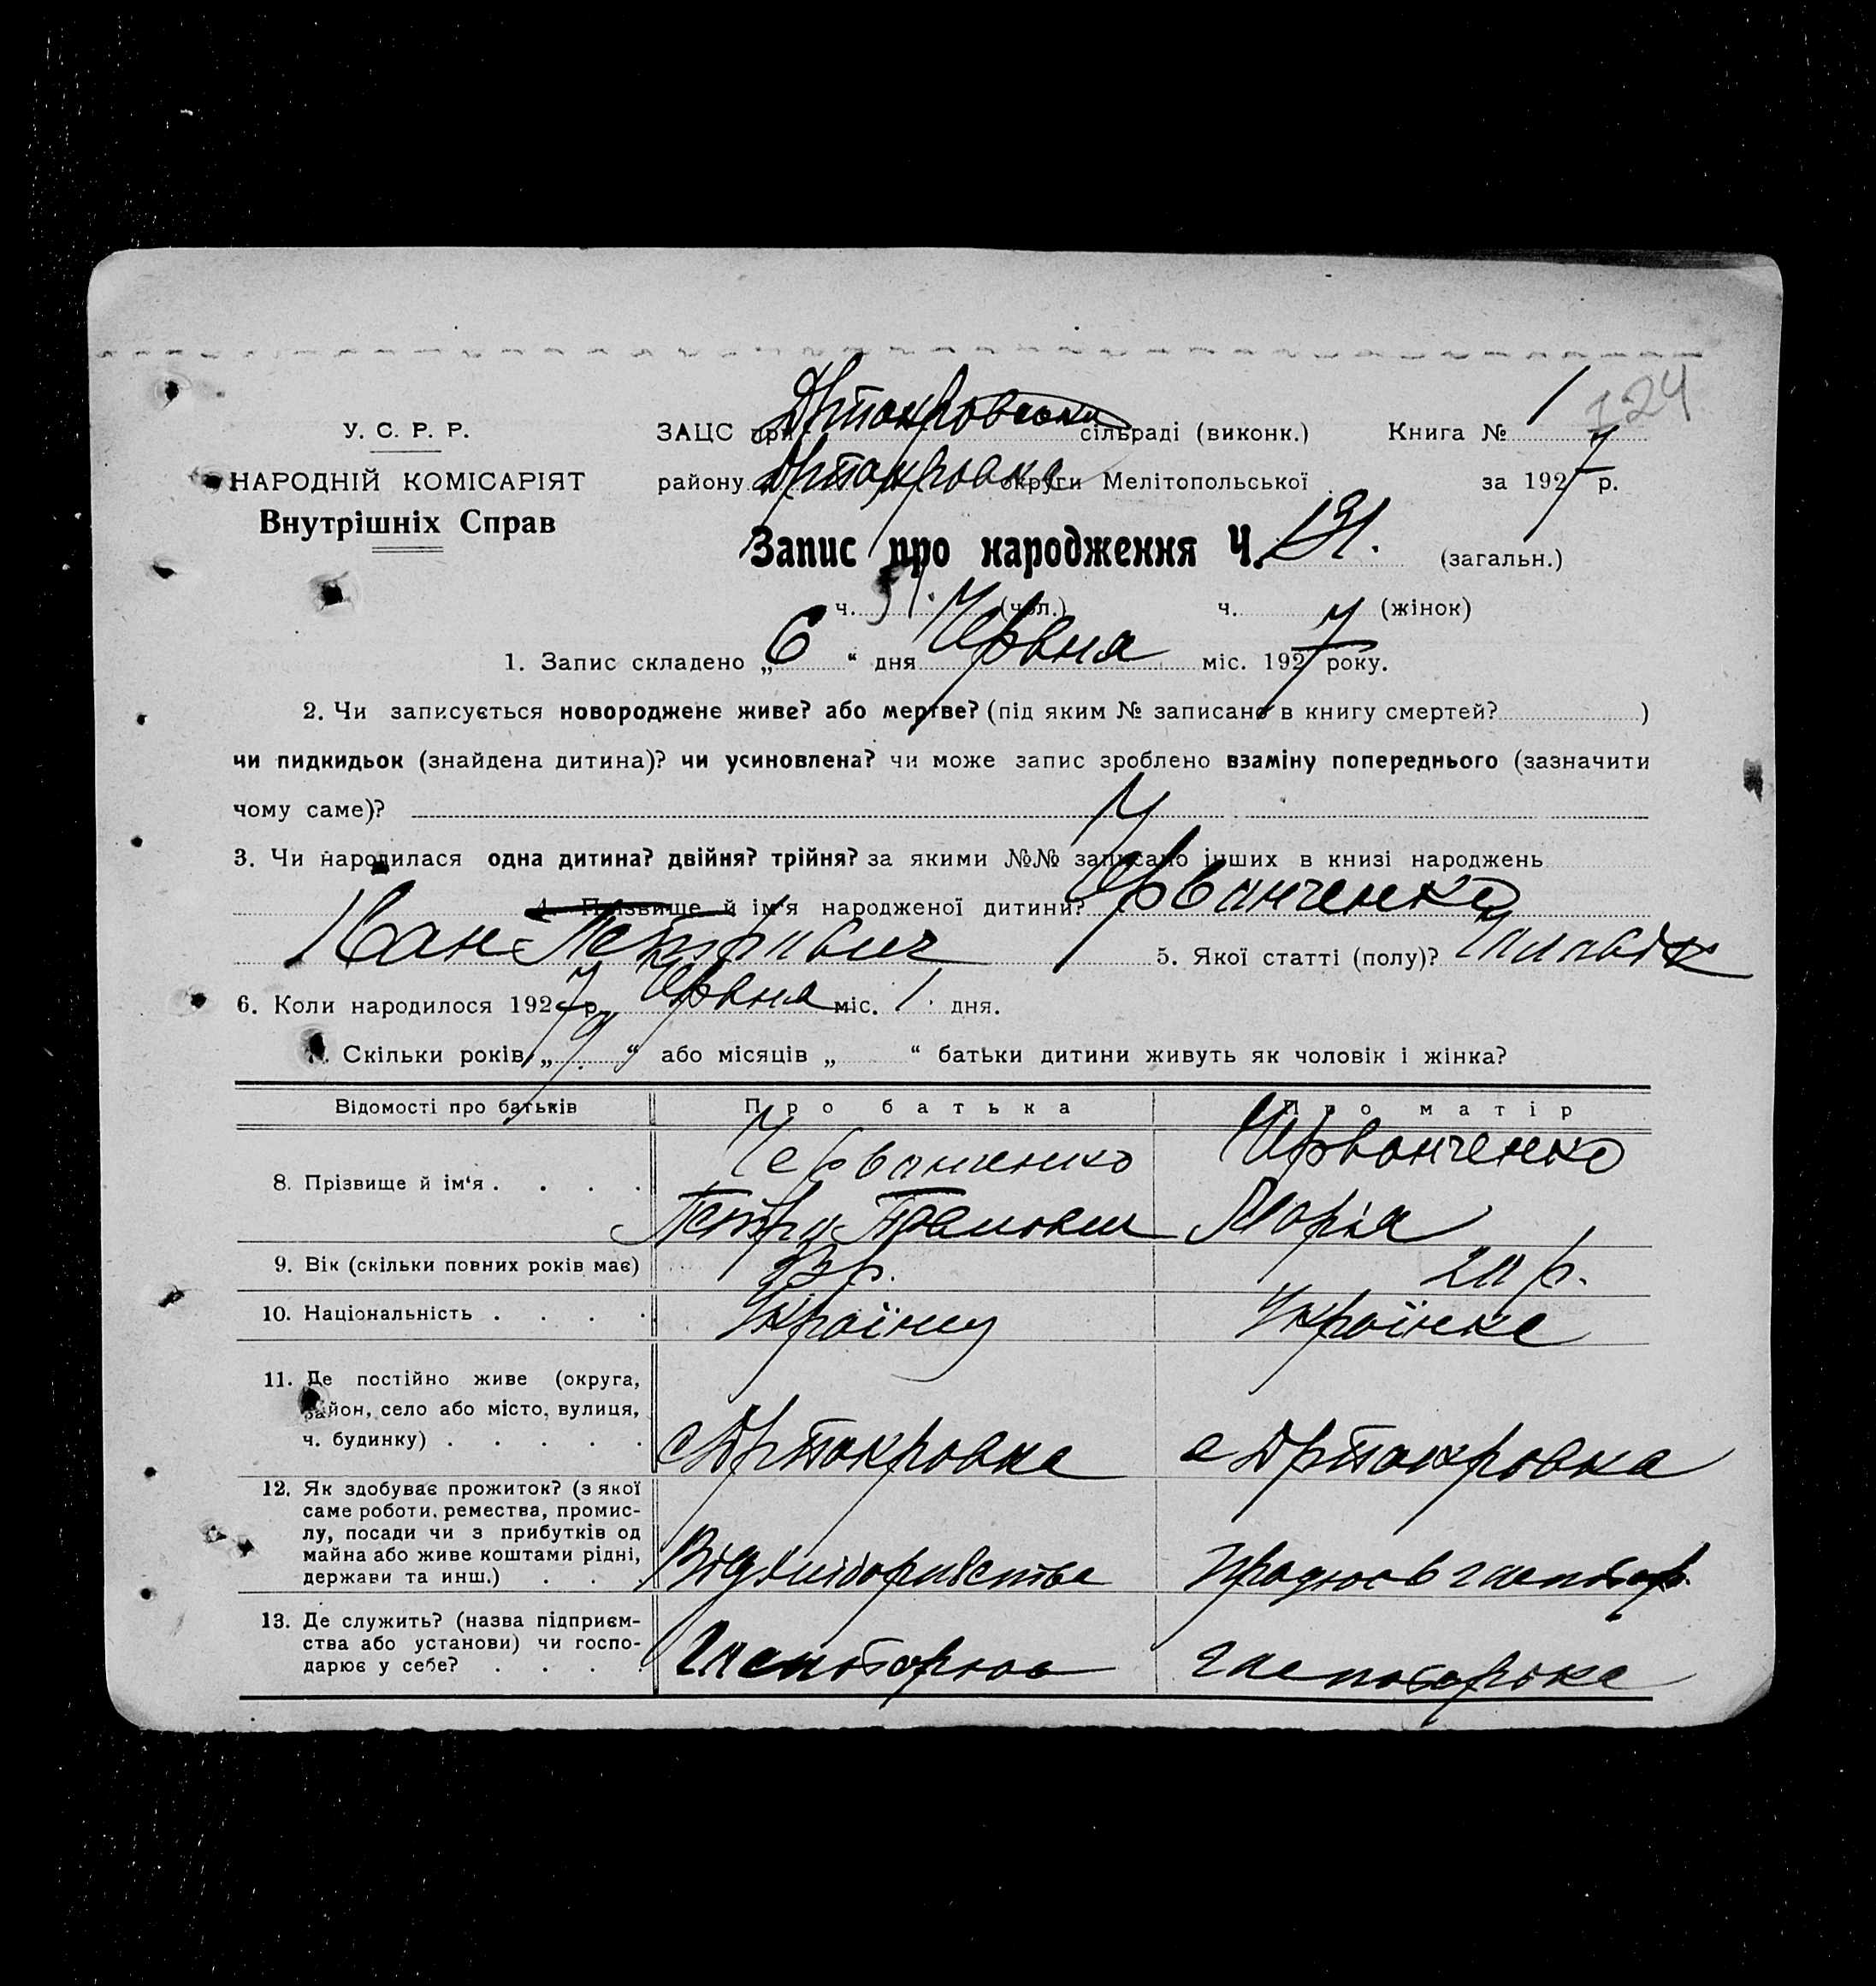 124
У. С. Р. Р.
НАРОДНІЙ КОМІСАРІЯТ
Внутрішніх Справ
ЗАЦС при Др Токровська сільраді (виконк.) Книга № 1
району Др Токровка округи Мелітопольської за 1927 р.
Запис про народження Ч. 131. (загальн.)
ч. 51. (чол.) ч. (жінок)
1. Запис складено „6“ дня Червня міс. 1927 року.
2. Чи записується новороджене живе? або мертве? (під яким № записано в книгу смертей? )
чи пидкидьок (знайдена дитина)? чи усиновлена? чи може запис зроблено взаміну попереднього (зазначити
чому саме)?
3. Чи народилася одна дитина? двійня? трійня? за якими №№ записано інших в книзі народжень
4. Прізвище й ім'я народженої дитини? Черванченко
Іван Петрович 5. Якої статті (полу)? Чиловік
6. Коли народилося 1927 р. Червня міс. 1. дня.
7. Скільки років „ “ або місяців „ “ батьки дитини живуть як чоловік і жінка?
Відомості про батьків Про батька Про матір
8. Прізвище й ім'я . . . . Червонченко Червонченко
Петро Марія
9. Вік (скільки повних років має) р. р.
10. Національність . . . . Українец Українка
11. Де постійно живе (округа,
район, село або місто, вулиця,
ч. будинку) . . . . . с Др Токровка с Др Токровка
12. Як здобуває прожиток? (з якої
саме роботи, ремества, промис-
лу, посади чи з прибутків од
майна або живе коштами рідні,
держави та инш.) . . . Від хліборобства Працює в господар.
13. Де служить? (назва підприєм-
ства або установи) чи госпо-
дарює у себе? . . . . Господарює господарка